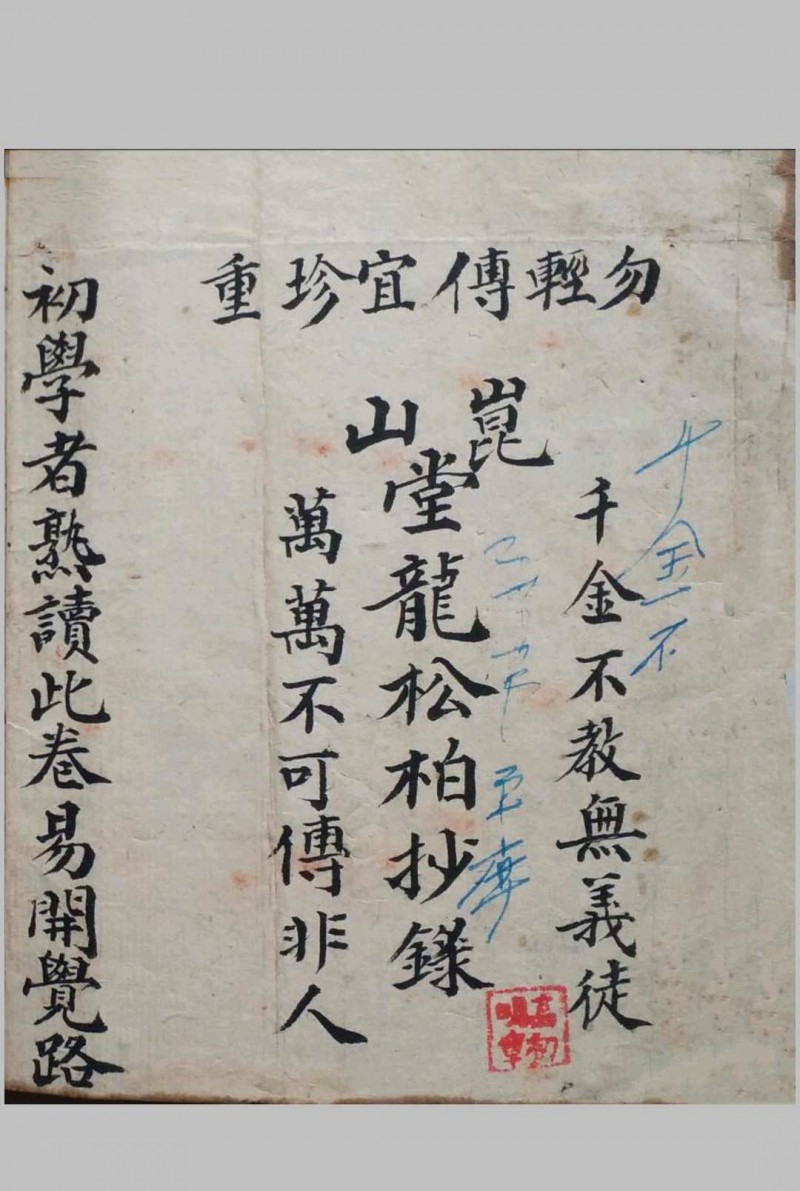 勿輕傳宜珍重
千金不
千金不教無義徒
崑山
堂龍松柏抄錄
萬萬不可傳非人
初學者熟讀此卷易開覺路